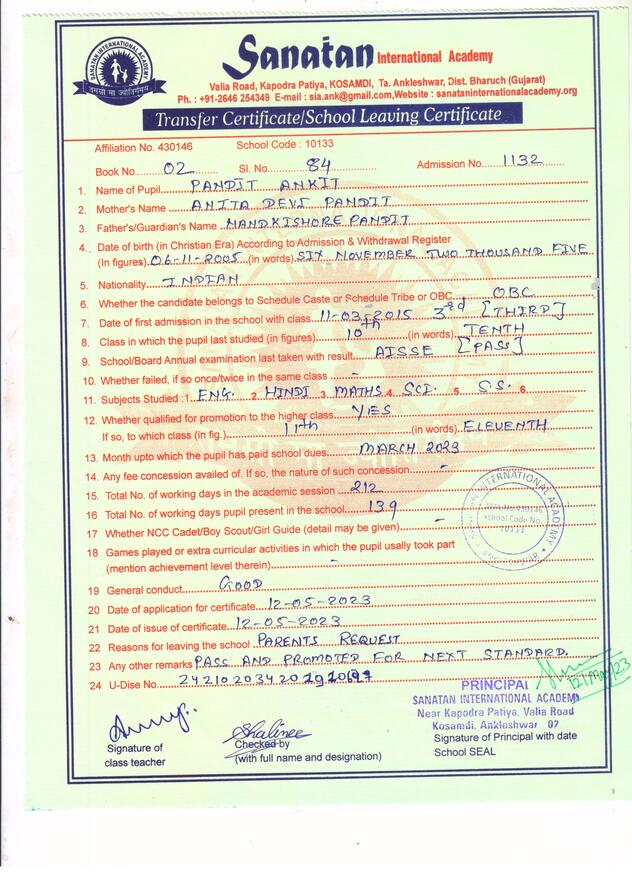 SANATAN INTERNATIONAL ACADEMY
तमसो मा ज्योतिर्गमय
Sanatan International Academy
Valia Road, Kapodra Patiya, KOSAMDI, Ta. Ankleshwar, Dist. Bharuch (Gujarat)
Ph. : +91-2646 254349 E-mail : sia.ank@gmail.com,Website : sanataninternationalacademy.org
Transfer Certificate/School Leaving Certificate
Affiliation No. 430146 School Code : 10133
Book No. 02 Sl. No. 84 Admission No. 1132
1. Name of Pupil PANDIT ANKIT
2. Mother's Name ANITA DEVI PANDIT
3. Father's/Guardian's Name NANDKISHORE PANDIT
4. Date of birth (in Christian Era) According to Admission & Withdrawal Register
(In figures) 06-11-2005 (in words) SIX NOVEMBER TWO THOUSAND FIVE
5. Nationality INDIAN
6. Whether the candidate belongs to Schedule Caste or Schedule Tribe or OBC OBC
7. Date of first admission in the school with class 11-03-2015 3rd [THIRD]
8. Class in which the pupil last studied (in figures) 10th (in words) TENTH
9. School/Board Annual examination last taken with result AISSE [PASS]
10. Whether failed, if so once/twice in the same class -
11. Subjects Studied :1. ENG. 2 HINDI 3. MATHS 4. SCI. 5. S.S. 6.
12. Whether qualified for promotion to the higher class YES
If so, to which class (in fig.) 11th (in words) ELEVENTH
13. Month upto which the pupil has paid school dues. MARCH 2023
14. Any fee concession availed of. If so, the nature of such concession -
15. Total No. of working days in the academic session 212
16 Total No. of working days pupil present in the school 139
17 Whether NCC Cadet/Boy Scout/Girl Guide (detail may be given) -
18 Games played or extra curricular activities in which the pupil usally took part
(mention achievement level therein) -
19 General conduct GOOD
20 Date of application for certificate 12-05-2023
21 Date of issue of certificate 12-05-2023
22 Reasons for leaving the school PARENTS REQUEST
23 Any other remarks PASS AND PROMOTED FOR NEXT STANDARD.
24 U-Dise No.
SANATAN INTERNATIONAL ACADEMY
School Code No.
10133
ANKLESHWAR
PRINCIPAL
SANATAN INTERNATIONAL ACADEMY
Near Kapodra Patiya, Valia Road
Kosamdi, Ankleshwar 02
Signature of Principal with date
School SEAL
Signature of
class teacher
Shalinee
Checked by
(with full name and designation)